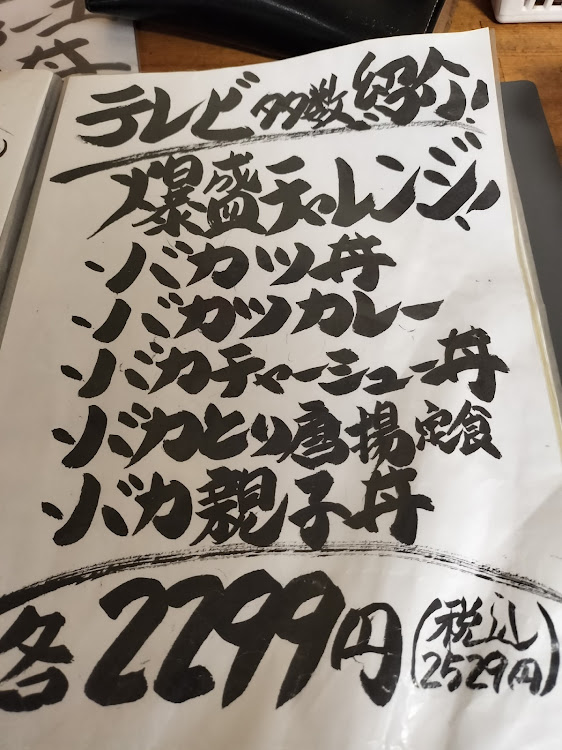 丼
テレビ多数紹介!
爆盛チャレンジ!
・バカツ丼
・バカツカレー
・バカチャーシュー丼
・バカとり唐揚定食
・バカ親子丼
各2299円(税込2529円)